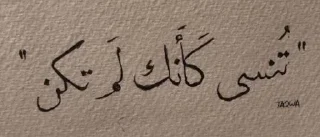 "تُنسى كَأنك لَم تكن"
TAQWA